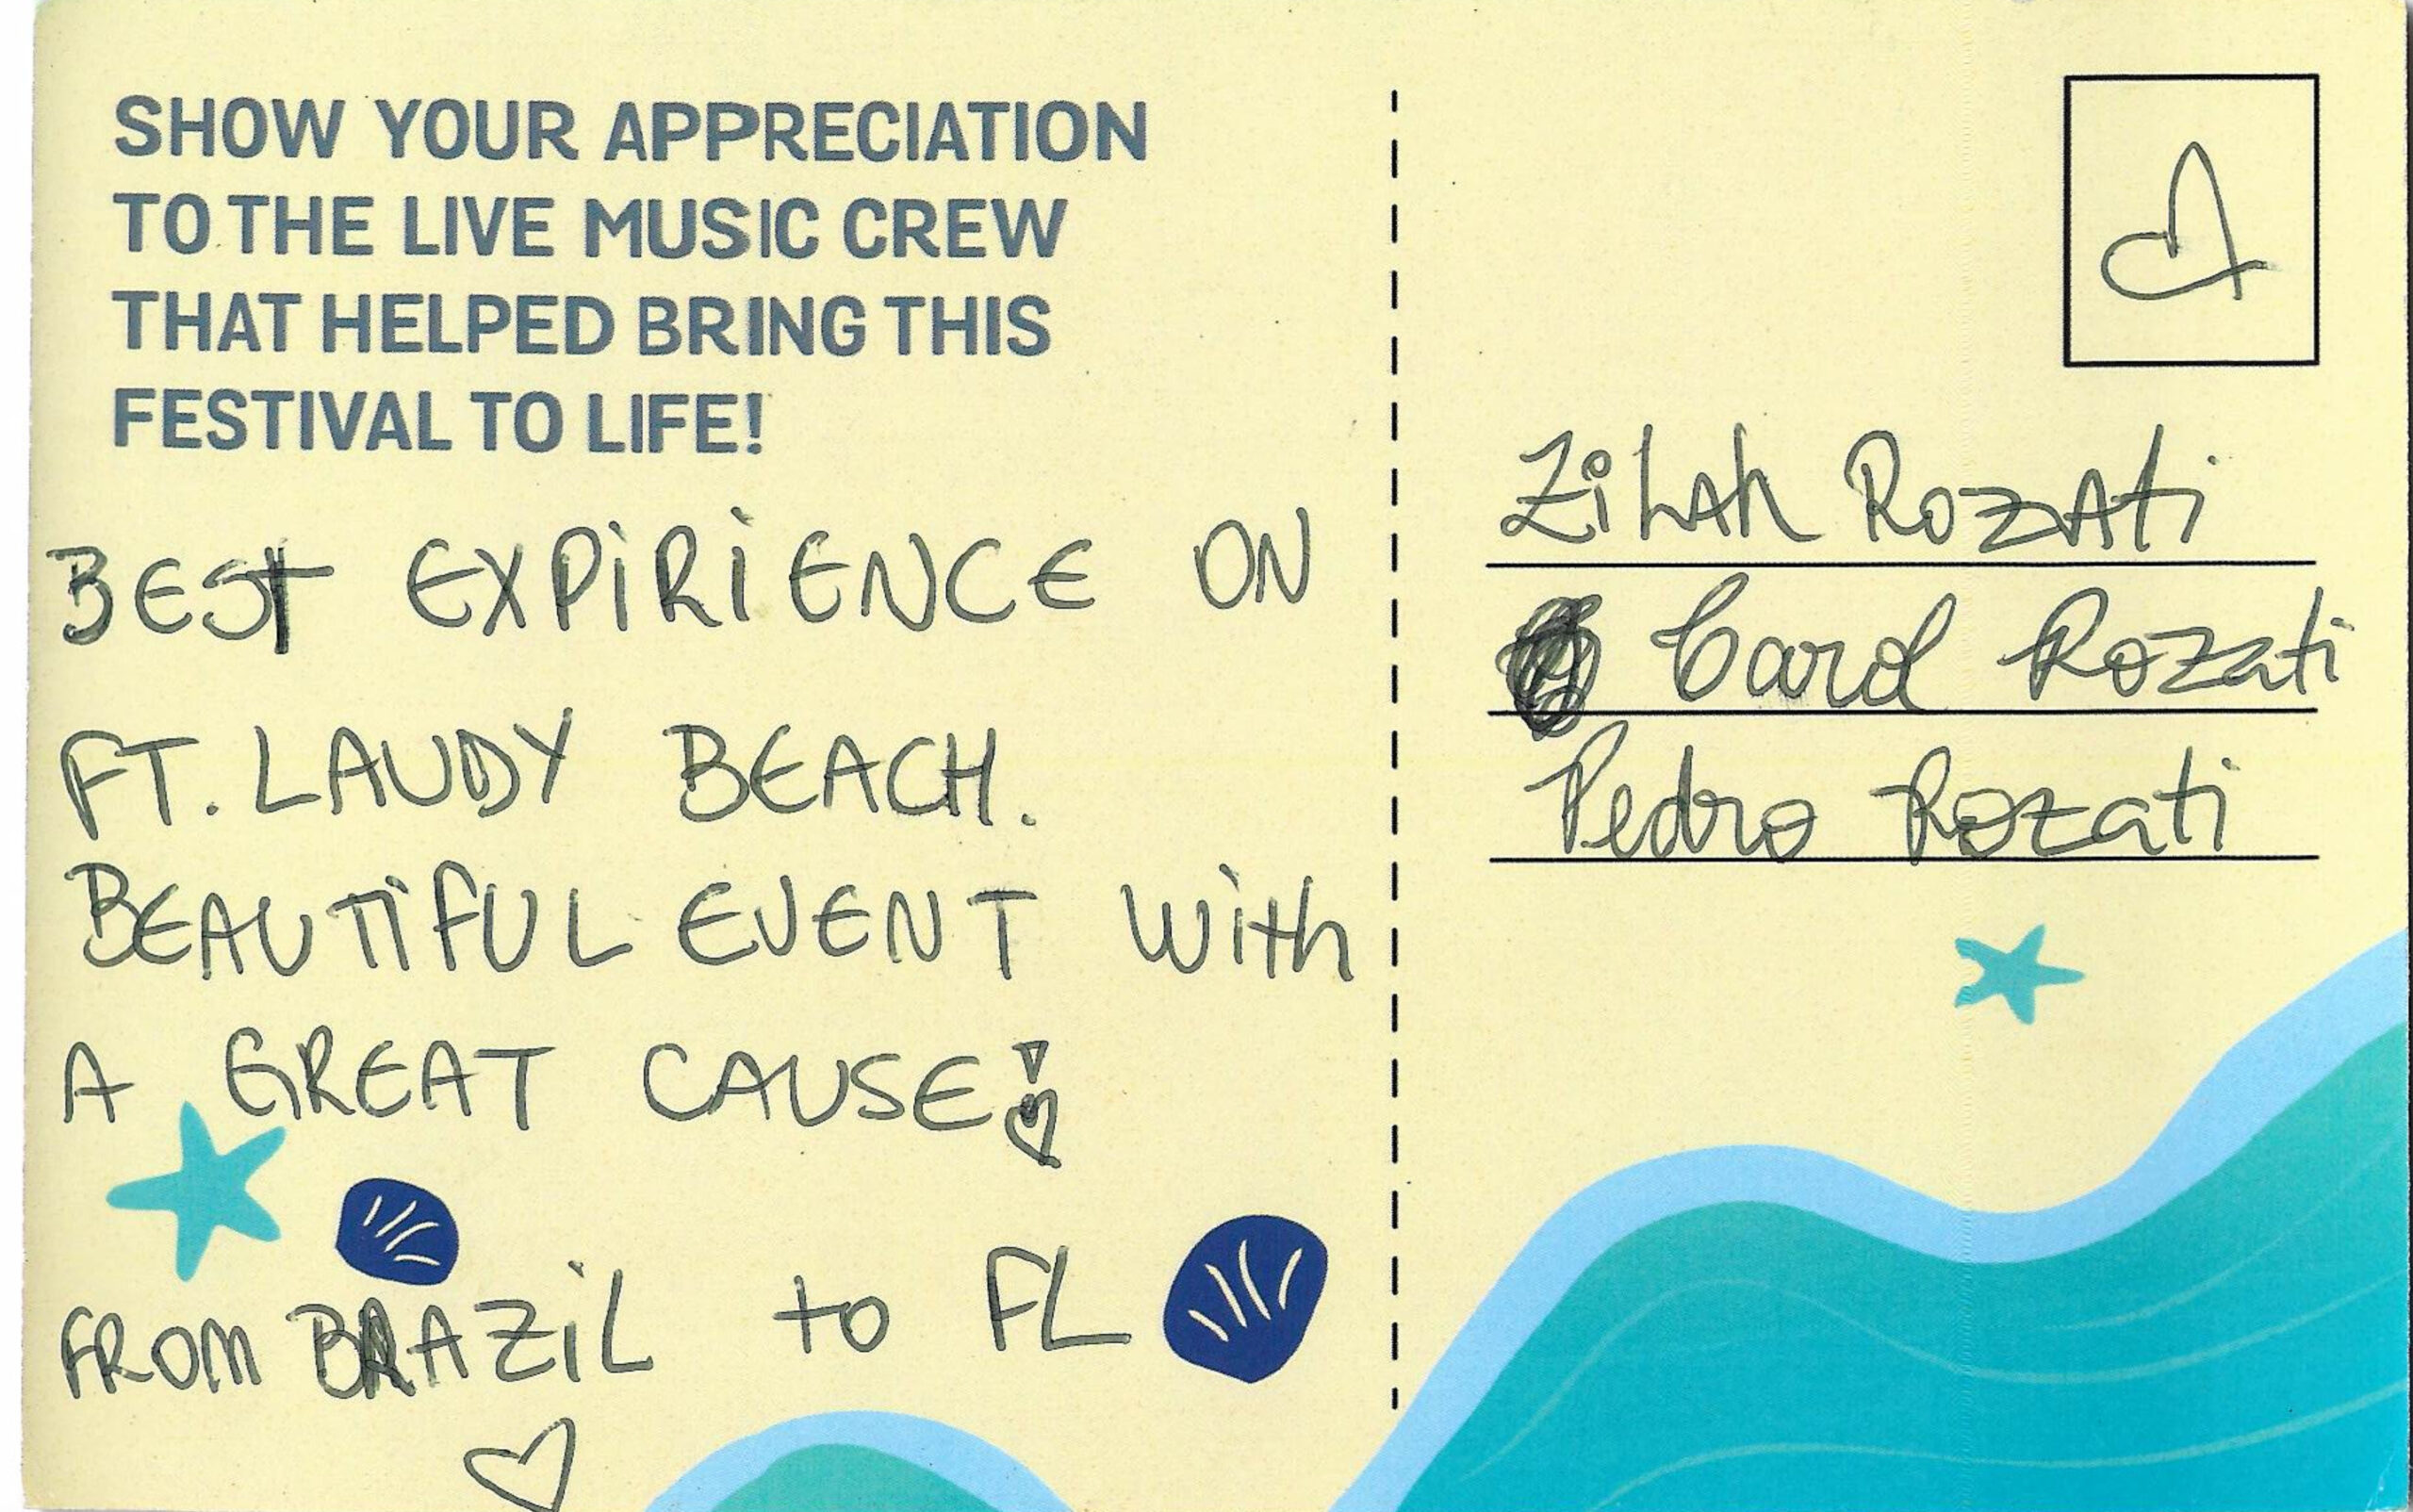 SHOW YOUR APPRECIATION
TO THE LIVE MUSIC CREW
THAT HELPED BRING THIS
FESTIVAL TO LIFE!
BEST EXPIRIENCE ON
FT. LAUDY BEACH.
BEAUTIFUL EVENT With
A GREAT CAUSE!
FROM BRAZIL to FL
Zilah Rozati
Carol Rozati
Pedro Rozati